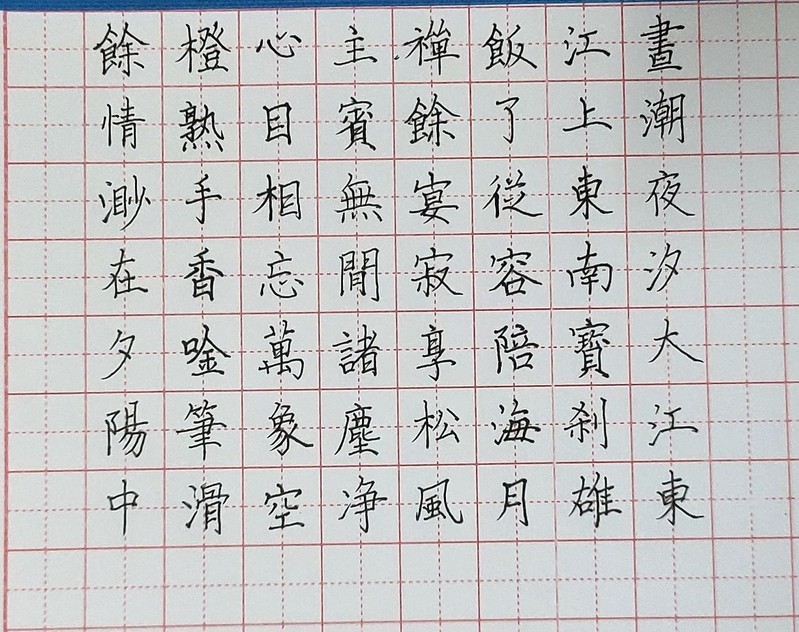 晝潮夜汐大江東
江上東南寶刹雄
飯了從容陪海月
禪餘宴寂享松風
主賓無間諸塵净
心目相忘萬象空
橙熟手香唫筆滑
餘情渺在夕陽中